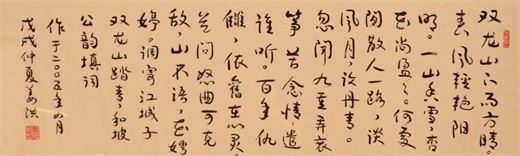 双龙山下雨方晴。
春风轻艳阳
明。一山香雪杏
花尚盈盈。何处
闲散人一路谈
风月论丹青。
忽闻九重弄哀
筝苦念情遣
谁听。百年仇
雠依旧在心灵
若问怒曲可克
敌山不语花娉
婷。调寄江城子
双龙山踏青和坡
公韵填词
作于二〇〇五年四月
戊戌仲夏姜洪